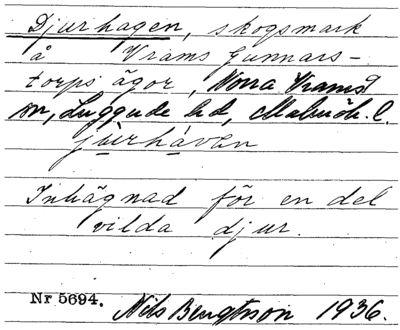 Djurhagen, skogsmark
å Vrams Gunnars-
torps ägor, Norra Vrams
sn, Luggude hd, Malmöh. l.
jùrhàven
Inhägnad för en del
vilda djur.
Nr 5694. Nils Bengtsson 1936.